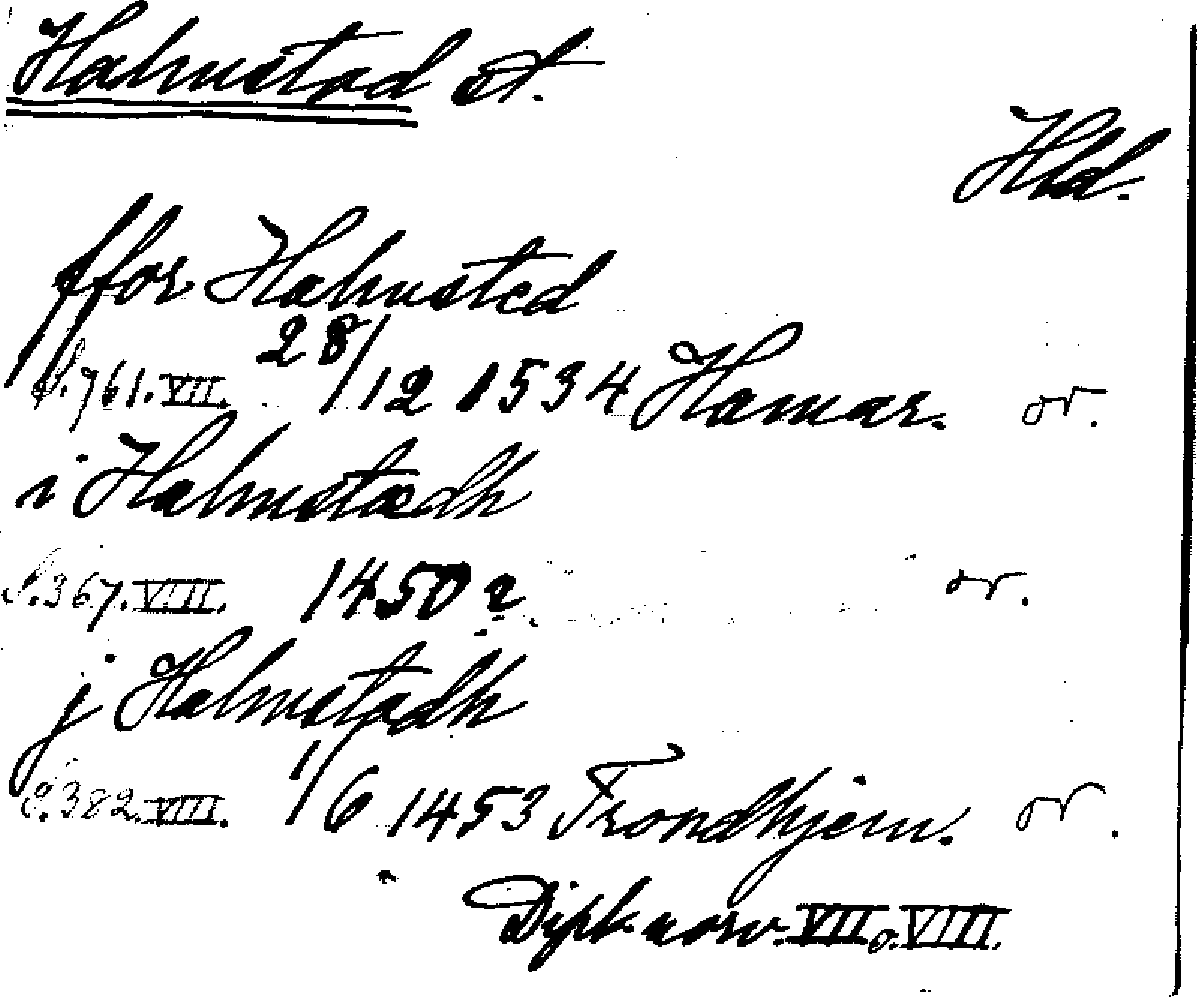 Halmstad st.
Hld.
ffor Halmsted
S. 761. VII. 28/12 1534 Hamar. or.
i Halmstædh
S. 367. VIII. 1450? or.
j Halmstadh
S. 382. VIII. 1/6 1453 Trondhjem. or.
Dipl. norv. VII o. VIII.